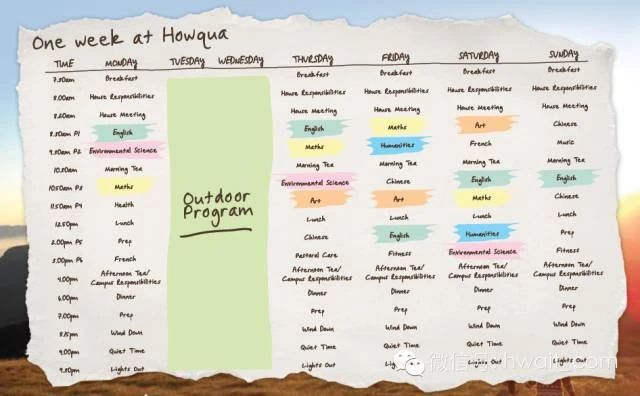 One week at Howqua
TIME MONDAY TUESDAY WEDNESDAY THURSDAY FRIDAY SATURDAY SUNDAY
7.30am Breakfast Breakfast Breakfast Breakfast Breakfast
8.00am House Responsibilities House Responsibilities House Responsibilities House Responsibilities House Responsibilities
House Meeting House Meeting House Meeting House Meeting House Meeting
8.50am P1 English English Maths Art Chinese
P2 Environmental Science Maths Humanities French Music
Morning Tea Morning Tea Morning Tea Morning Tea Morning Tea
10.50am P3 Maths Environmental Science Chinese English English
11.50am P4 Health Art Art Maths Chinese
12.50pm Lunch Lunch Lunch Lunch Lunch
2.00pm P5 Prep Chinese English Humanities Prep
3.00pm P6 French Pastoral Care Fitness Environmental Science Fitness
4.00pm Afternoon Tea/ Afternoon Tea/ Afternoon Tea/ Afternoon Tea/ Afternoon Tea/
Campus Responsibilities Campus Responsibilities Campus Responsibilities Campus Responsibilities Campus Responsibilities
6.00pm Dinner Dinner Dinner Dinner Dinner
7.00pm Prep Prep Prep Prep Prep
8.15pm Wind Down Wind Down Wind Down Wind Down Wind Down
9.00pm Quiet Time Quiet Time Quiet Time Quiet Time Quiet Time
9.30pm Lights Out Lights Out Lights Out Lights Out
Outdoor
Program
微信